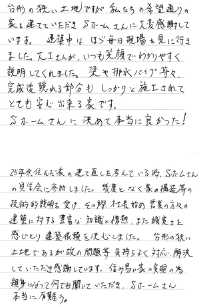 台形の狭い土地ですが 私たちの希望通りの
家を建てていただき Sホームさんに大変感謝して
います。 建築中は ほぼ毎日現場を見に行き
ました。大工さんが、いつも笑顔でわかりやすく
説明してくれました。 梁や排水パイプ等々
完成後隠れる部分も しっかりと施工されて
とても安心出来る家です。
Sホームさんに 決めて本当に良かった!
25年余住んだ家の建て直しを考えている時、Sホームさん
の見学会に参加しました。幾度となく家の構造等の
技術的説明を受け、その際、社長始め 営業の方々の
建築に対する豊富な知識と情熱、また誠実さを
感じとり 建築依頼を決心しました。 台形の狭い
土地であるが故の問題等 気持ちよく対応 解決
していただき感謝しています。
になって何でも聞いていただき、Sホームさん
本当に有難う。